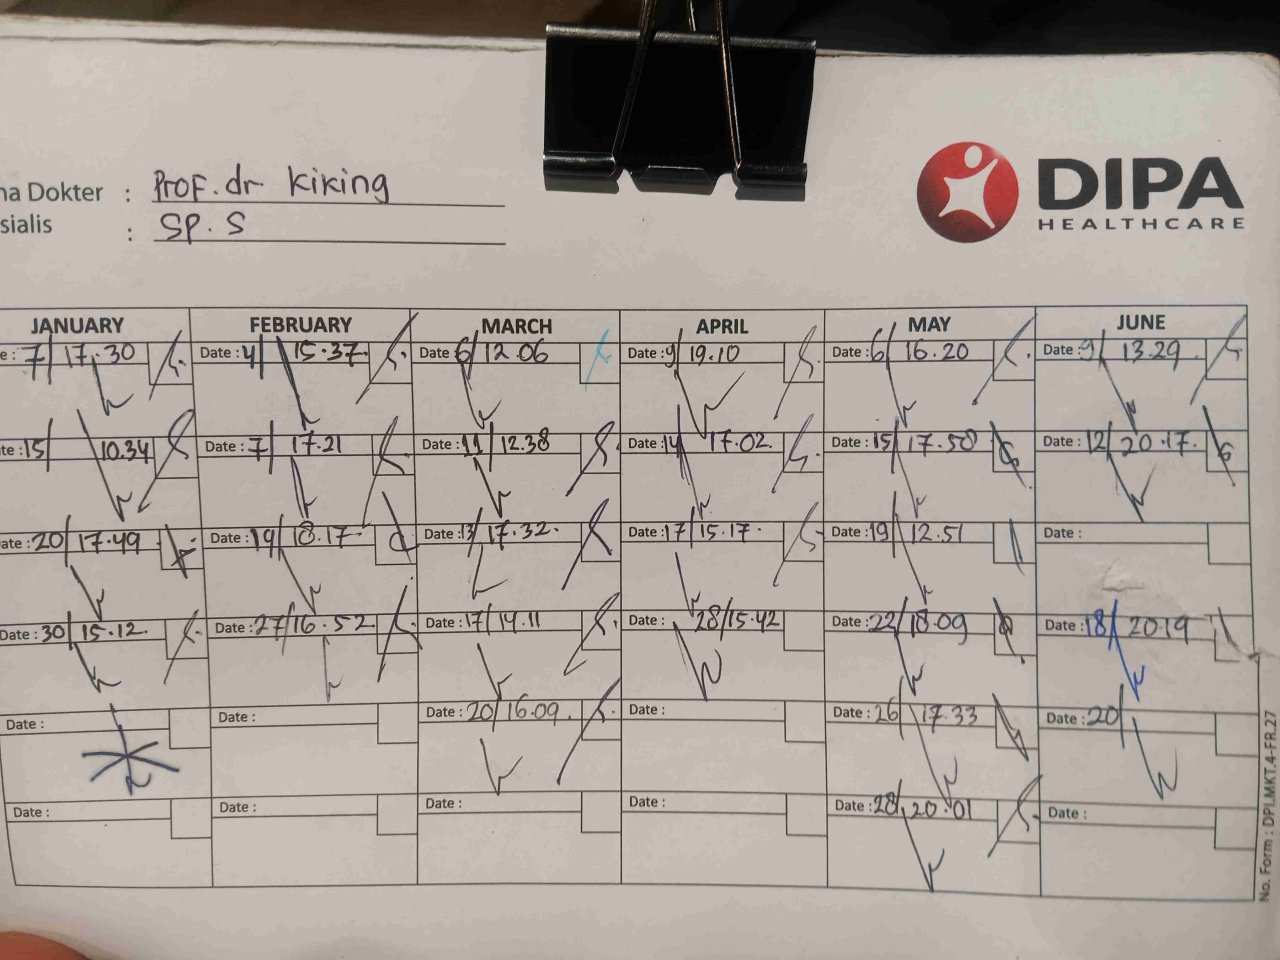 DIPA
HEALTHCARE
na Dokter : Prof. dr Kiking
sialis : SP. S
JANUARY FEBRUARY MARCH APRIL MAY JUNE
e : 7/ 17.30 Date : 4/ 15.37 Date : 6/ 12.06 Date : 9/ 19.10 Date : 6/ 16.20 Date : 9/ 13.29
te : 15/ 10.34 Date : 7/ 17.21 Date : 11/ 12.38 Date : 14/ 17.02 Date : 15/ 17.50 Date : 12/ 20.17
ate : 20/ 17.49 Date : 19/ 18.17 Date : 13/ 17.32 Date : 17/ 15.17 Date : 19/ 12.51 Date :
Date : 30/ 15.12 Date : 27/ 16.52 Date : 17/ 14.11 Date : 28/15.42 Date : 22/ 18.09 Date : 18/ 20.19
Date : Date : Date : 20/ 16.09 Date : Date : 26/ 17.33 Date : 20/
Date : Date : Date : Date : Date : 28/ 20.01 Date :
No. Form : DPI.MKT.4-FR.27